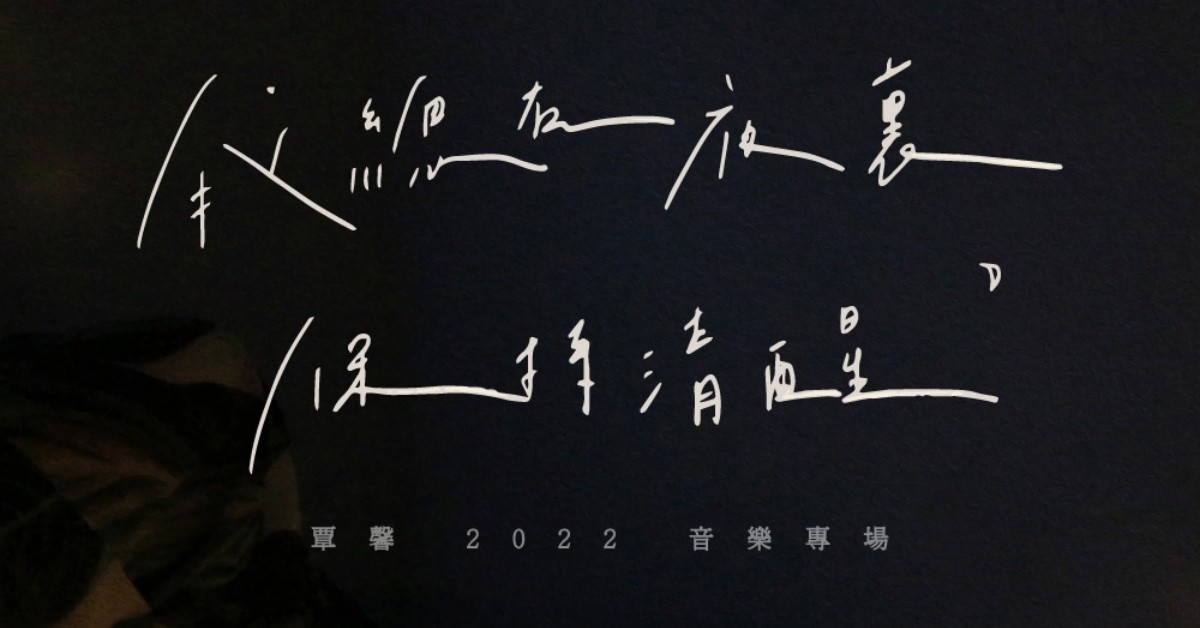 我總在夜裏
保持清醒。
覃馨 2022 音樂專場